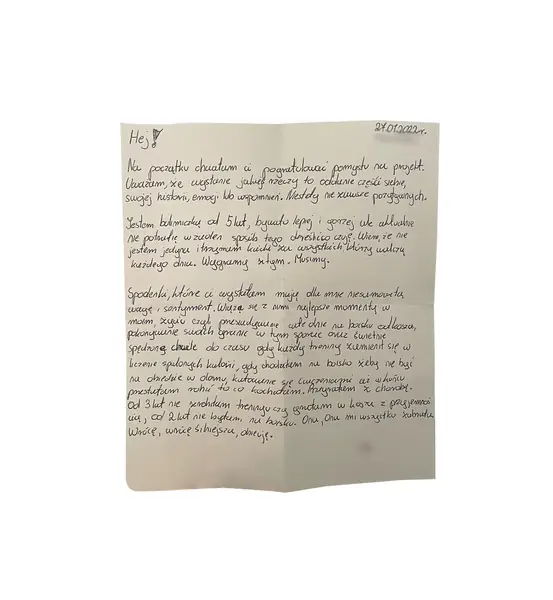 Hej!
27.01.2022r.
Na początku chciałam ci pogratulować pomysłu na projekt.
Uważam, że wysłanie jakiejś rzeczy to oddanie części siebie,
swojej historii, emocji lub wspomnień. Niestety nie zawsze pozytywnych.
Jestem bulimiczką od 5 lat, bywało lepiej i gorzej ale aktualnie
nie potrafię w żaden sposób tego określić co czuję. Wiem, że nie
jestem jedyna i trzymam kciuki za wszystkich, którzy walczą
każdego dnia. Wygramy z tym. Musimy.
Spodenki, które ci wysłałam mają dla mnie niesamowitą
wagę i sentyment. Wiążą się z nimi najlepsze momenty w
moim życiu czyli przesiadywanie całe dnie na boisku od kosza,
pokonywanie swoich granic w tym sporcie oraz świetnie
spędzone chwile do czasu gdy każdy trening zamienił się w
liczenie spalonych kalorii, gdy chodziłam na boisko żeby nie być
na obiedzie w domu, katowanie się ćwiczeniami aż w końcu
przestałam robić to co kochałam. Przegrałam z chorobą.
Od 3 lat nie zrobiłam treningu czy zagrałam w kosza z przyjemnoś
cią, od 2 lat nie byłam na boisku. Ona, ona mi wszystko zabrała.
Wrócę, wrócę silniejsza, obiecuję.